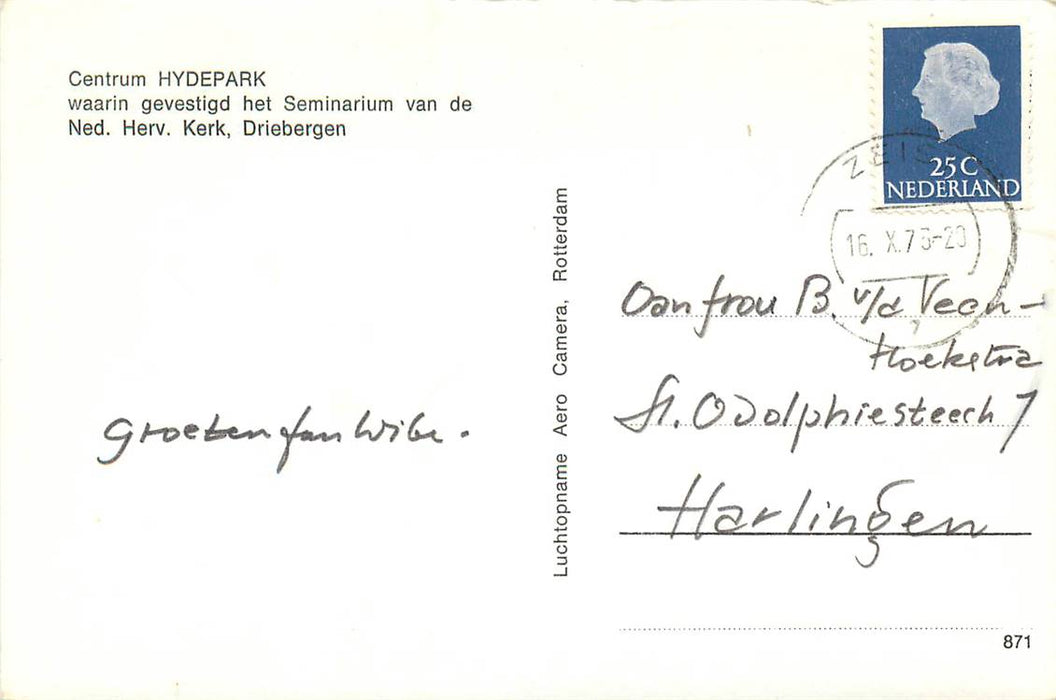 Centrum HYDEPARK
waarin gevestigd het Seminarium van de
Ned. Herv. Kerk, Driebergen
25C
NEDERLAND
ZEIST
16. X.7 -20
Luchtopname Aero Camera, Rotterdam
Oan frou B. v/d Veen-
Hoekstra
St. Odolphiesteech 7
Harlingen
Groeten fan Wibe.
871